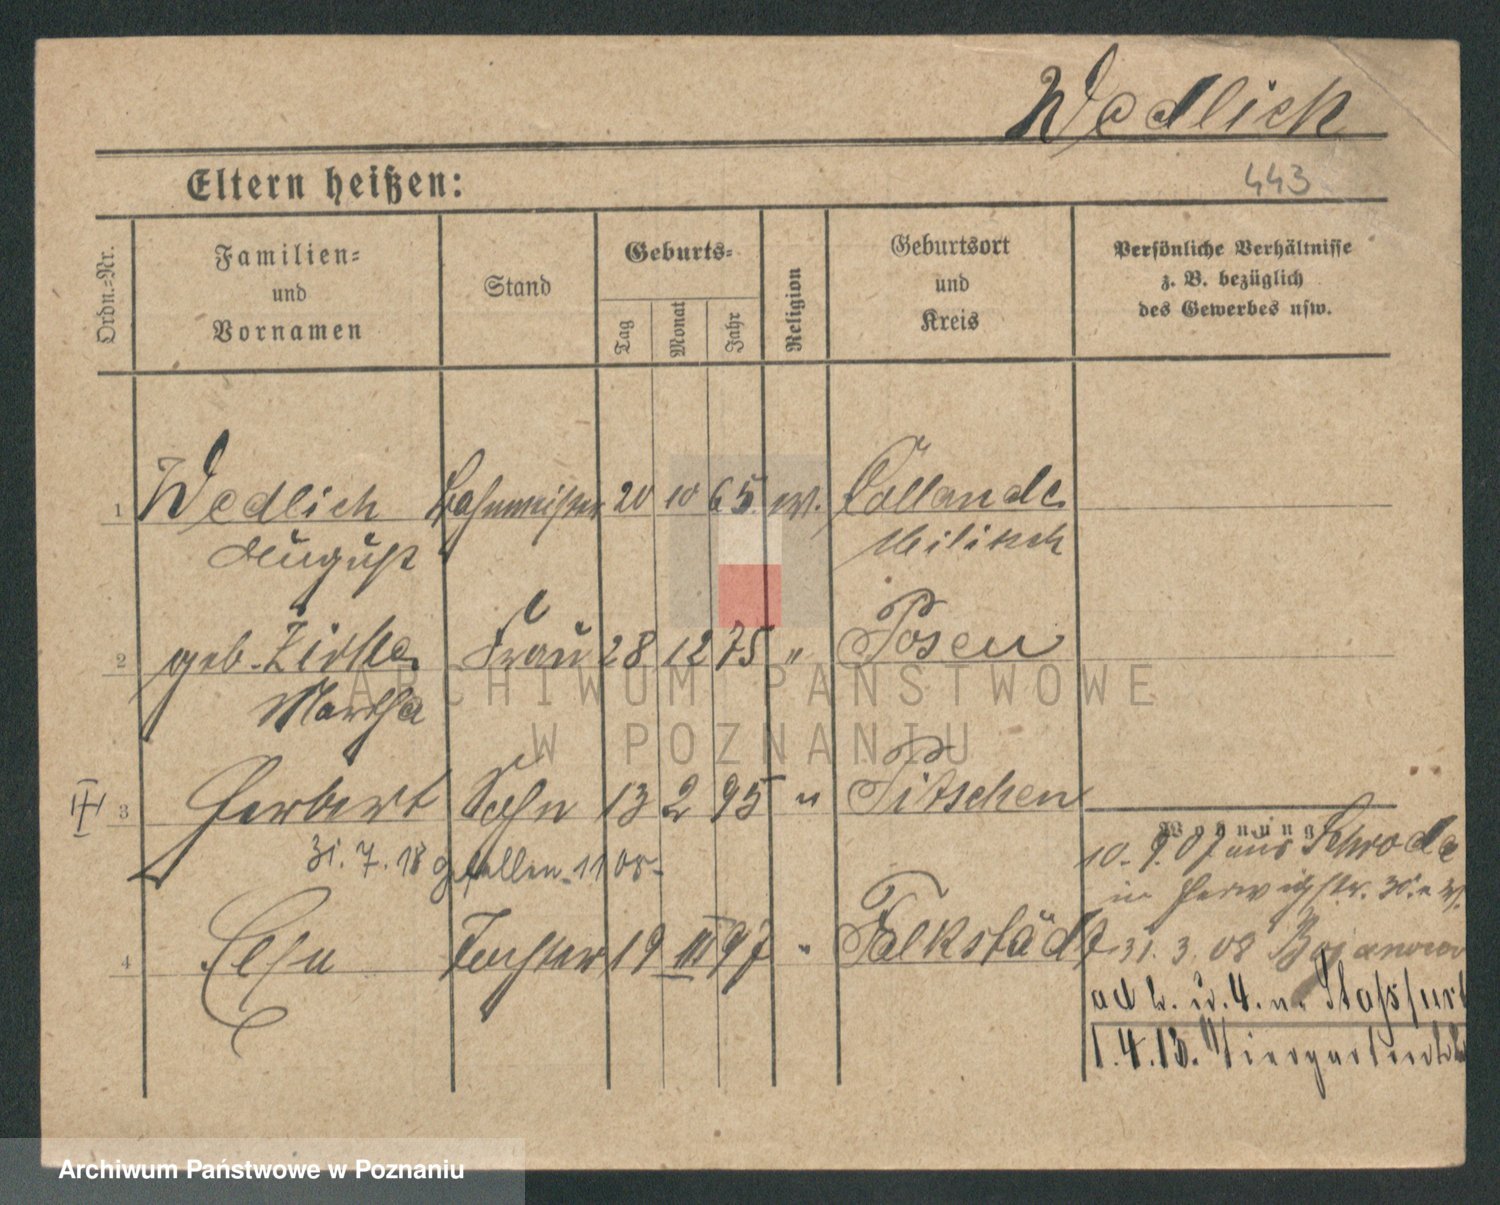 Wedlich
443
Eltern heißen:
Ordn.=Nr.
Familien=
und
Vornamen
Stand
Geburts=
Tag
Monat
Jahr
Religion
Geburtsort
und
Kreis
Persönliche Verhältnisse
z. B. bezüglich
des Gewerbes usw.
1 Wedlich Bahnmeister 20 10 65 ev. Collande
August Militsch
2 geb. Frau 28 12 75 " Posen
Martha
3 Herbert Sohn 13 2 95 " Pitschen
31. 7. 18 gefallen 1108
Wohnung
10. 9. 07 aus Schroda
in Herwighstr. 30
4 Else Tochter 19 III 97 " Falkstädt
31. 3. 08 Bojanowo
4. n. Stassfurt
1. 4. 13. Tiergartenstr
ARCHIWUM PAŃSTWOWE
W POZNANIU
Archiwum Państwowe w Poznaniu